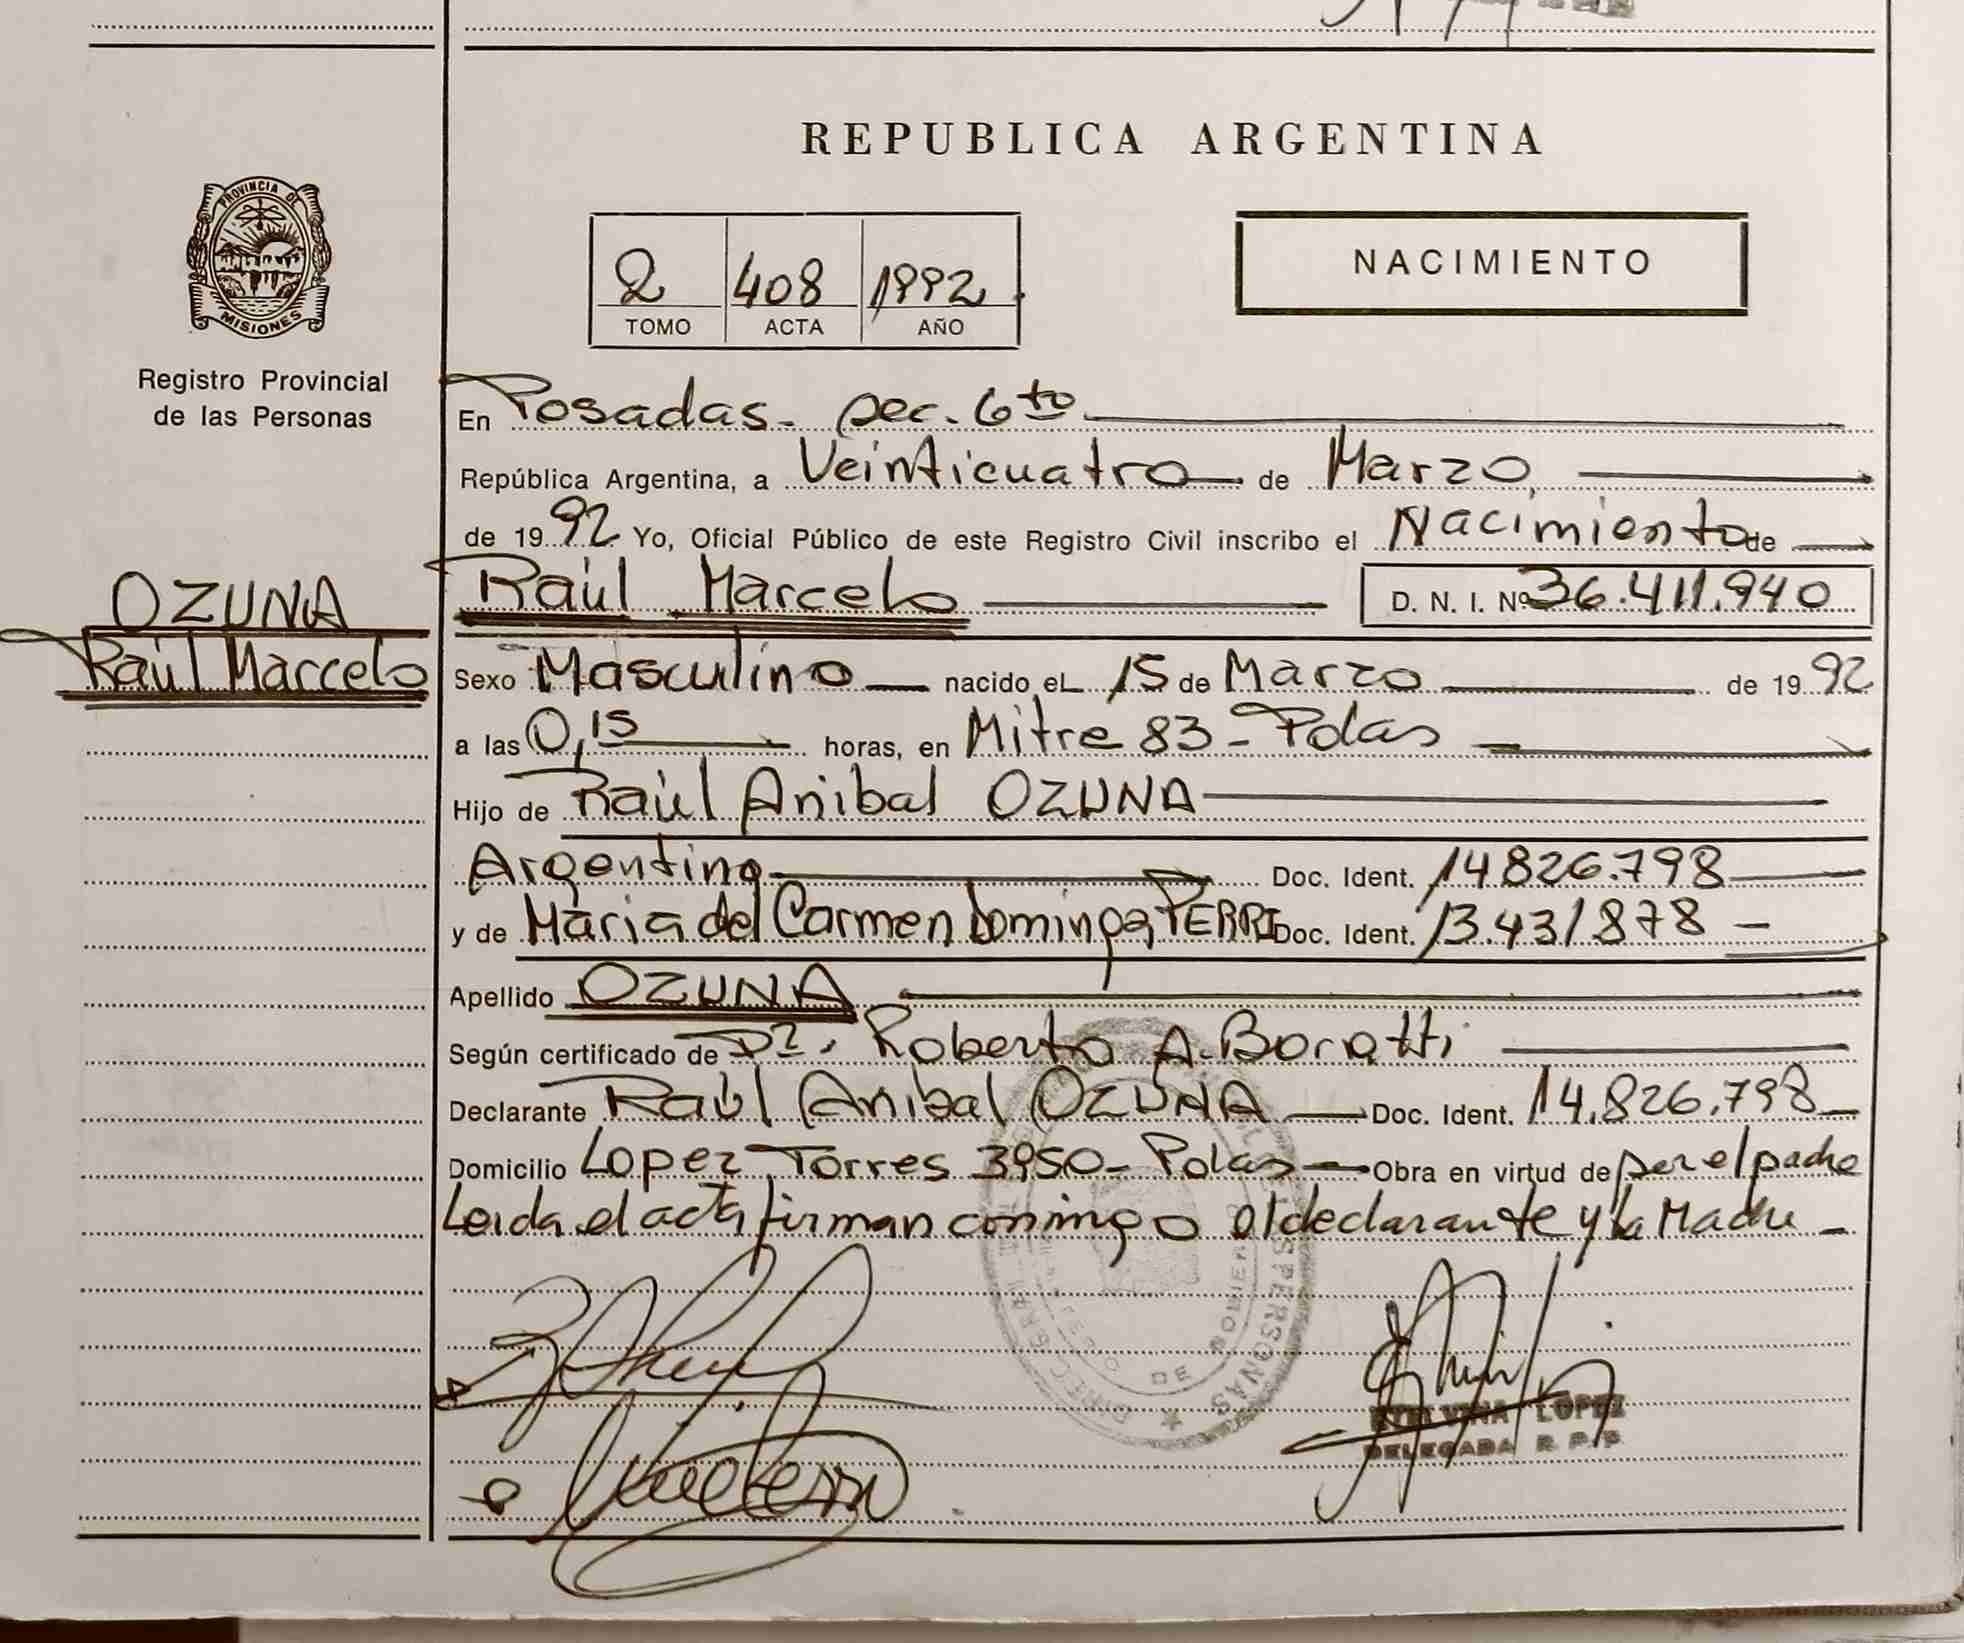 REPUBLICA ARGENTINA
PROVINCIA DE
MISIONES
Registro Provincial
de las Personas
2 408 1992
TOMO ACTA AÑO
NACIMIENTO
En Posadas - sec. 6to
República Argentina, a Veinticuatro de Marzo,
de 1992 Yo, Oficial Público de este Registro Civil inscribo el Nacimiento de
OZUNA
Raúl Marcelo
Raúl Marcelo D. N. I. Nº 36.411.940
Sexo Masculino nacido el 15 de Marzo de 1992
a las 0,15 horas, en Mitre 83 - Pdas
Hijo de Raúl Anibal OZUNA
Argentino Doc. Ident. 14826.798
y de Maria del Carmen Dominga PERRI Doc. Ident. 13.431878
Apellido OZUNA
Según certificado de Dr. Roberto A. Boratti
Declarante Raúl Anibal OZUNA Doc. Ident. 14.826.798
Domicilio Lopez Torres 3950 - Pdas Obra en virtud de ser el padre
Leida el acta firman conmigo el declarante y la Madre
DE LAS PERSONAS
LOPEZ
DELEGADA R. P. P.